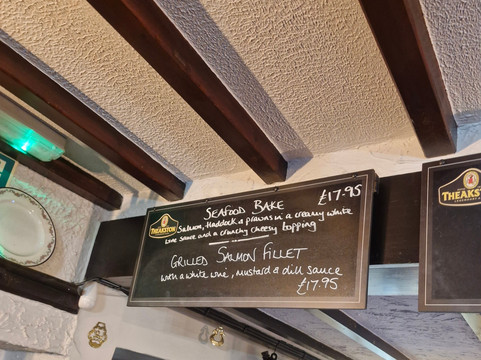 SEAFOOD BAKE £17.95
Salmon, Haddock & prawns in a creamy white
wine sauce and a crunchy cheesy topping
THEAKSTON
GRILLED SALMON FILLET
with a white wine, mustard & dill sauce
£17.95
THEAKS